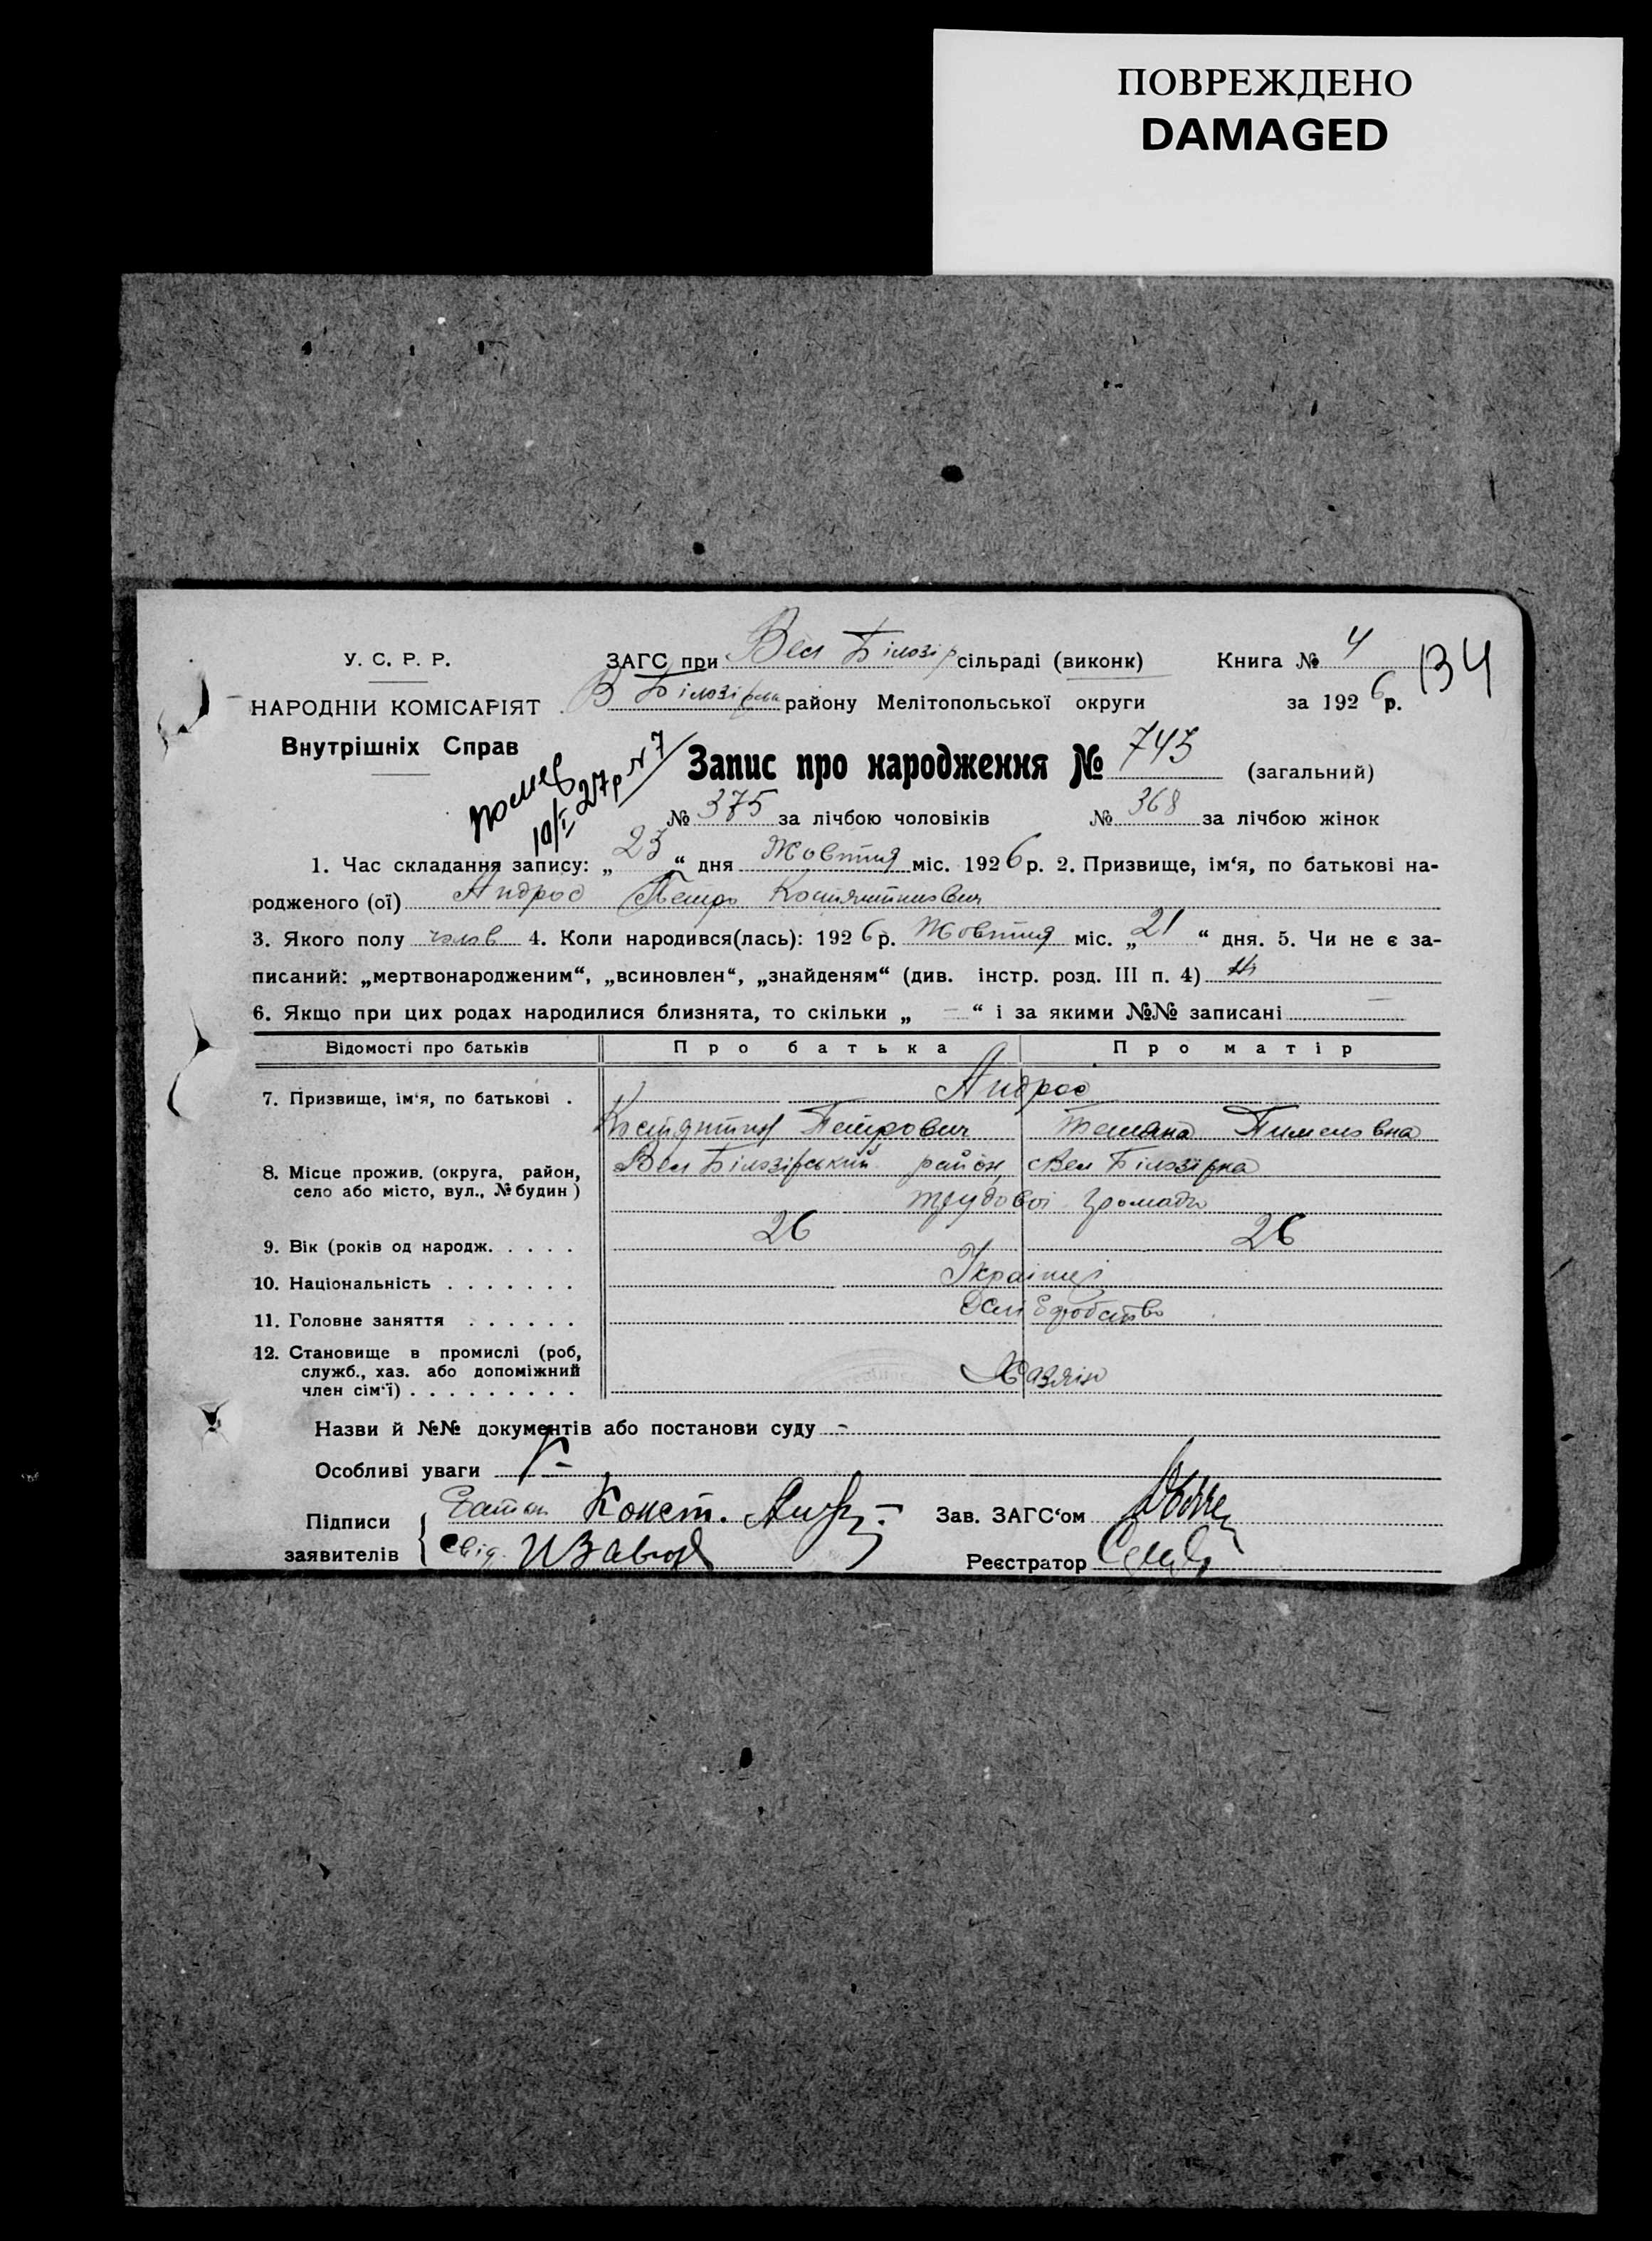 ПОВРЕЖДЕНО
DAMAGED
У. С. Р. Р. ЗАГС при Вел Білозір сільраді (виконк) Книга № 4 134
НАРОДНІЙ КОМІСАРІЯТ В Білозірськ району Мелітопольської округи за 1926 р.
Внутрішніх Справ
Запис про народження № 743 (загальний)
помер
10/I 27р N 7
№ 375 за лічбою чоловіків № 368 за лічбою жінок
1. Час складання запису: „ 23 “ дня Жовтня міс. 1926 р. 2. Призвище, ім‘я, по батькові на-
родженого (ої) Андрос Петро Костянтинович
3. Якого полу чолов 4. Коли народився(лась): 1926 р. Жовтня міс. „ 21 “ дня. 5. Чи не є за-
писаний: „мертвонародженим“, „всиновлен“, „знайденям“ (див. інстр. розд. III п. 4) Ні
6. Якщо при цих родах народилися близнята, то скільки „ — “ і за якими №№ записані —
Відомості про батьків Про батька Про матір
7. Призвище, ім‘я, по батькові . Андрос
Костянтин Петрович Тетяна Пименовна
8. Місце прожив. (округа, район, Вел Білозірський район, Вел Білозірка
село або місто, вул., № будин ) трудової громади
9. Вік (років од народж. . . . . 26 26
10. Національність . . . . . . . Українці
11. Головне заняття . . . . . . Хліборобство
12. Становище в промислі (роб,
служб., хаз. або допоміжний Хазяін
член сім‘ї) . . . . . . . . .
Назви й №№ документів або постанови суду -
Особливі уваги -
Підписи Батьк Конст. Зав. ЗАГС‘ом
заявителів Свід. Реєстратор